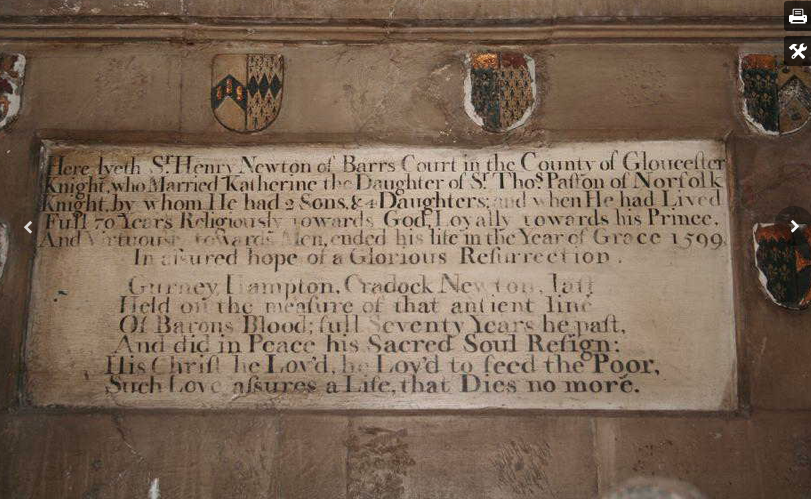 Here lyeth Sr. Henry Newton of Barrs Court in the County of Glouceſter
Knight, who Married Katherine the Daughter of Sr. Thos. Paſton of Norfolk
Knight, by whom He had 2 Sons, & 4 Daughters; and when He had Lived
Full 70 Years Religiously towards God, Loyally towards his Prince,
And Virtuously towards Men, ended his life in the Year of Grace 1599,
In aſsured hope of a Glorious Reſurrection.
Gurney, Hampton, Cradock Newton, laſt
Held on the meaſure of that antient line
Of Barons Blood; full Seventy Years he paſt,
And did in Peace his Sacred Soul Reſign:
His Chriſt he Lov'd, he Lov'd to feed the Poor,
Such Love aſsures a Life, that Dies no more.